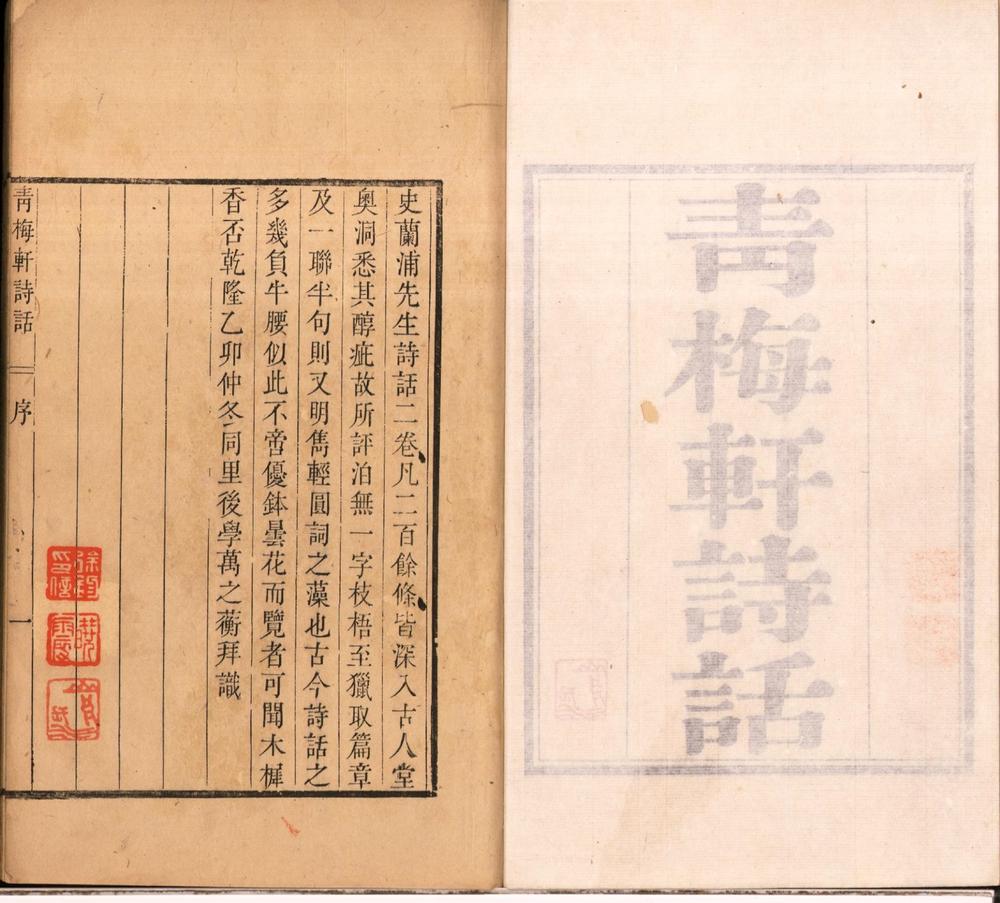 青梅軒詩話
史蘭浦先生詩話二卷凡二百餘條皆深入古人堂
奧洞悉其醇疵故所評泊無一字枝梧至獵取篇章
及一聯半句則又明雋輕圓詞之藻也古今詩話之
多幾負牛腰似此不啻優鉢曇花而覽者可聞木樨
香否乾隆乙卯仲冬同里後學萬之蘅拜識
青梅軒詩話 序 一